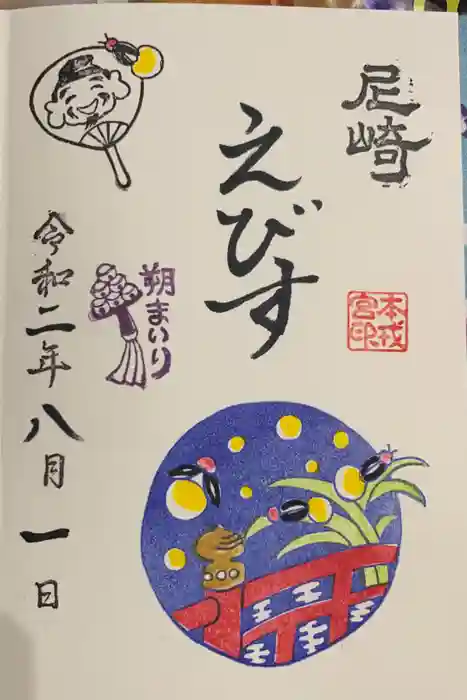 尼崎
えびす
本戎宮印
朔まいり
令和二年八月一日